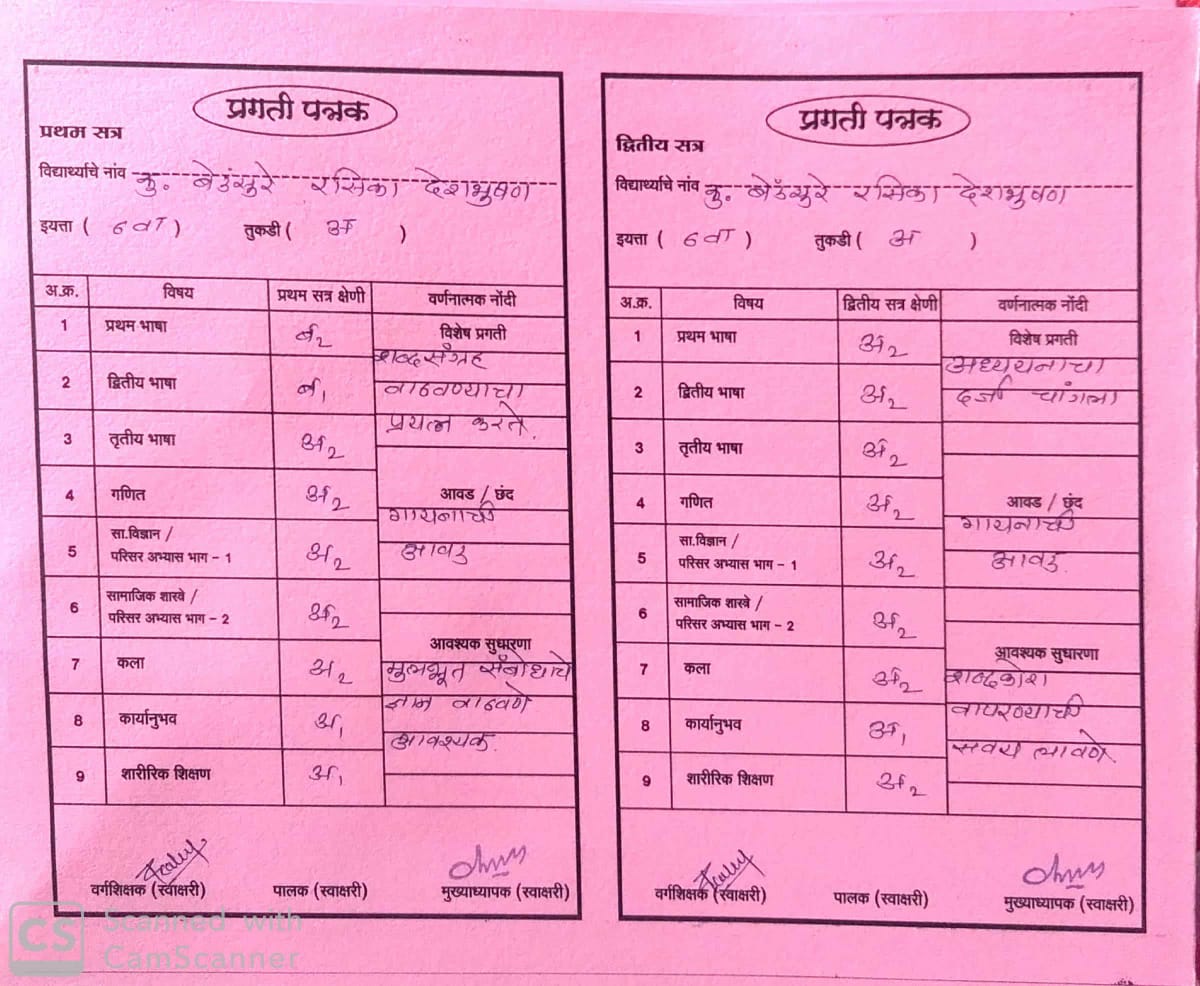 प्रगती पत्रक
प्रथम सत्र
विद्यार्थ्याचे नांव कु. बेउंसुरे रसिका देशभुषण
इयत्ता ( ६ वी ) तुकडी ( अ )
अ.क्र. विषय प्रथम सत्र क्षेणी वर्णनात्मक नोंदी
1 प्रथम भाषा ब2 विशेष प्रगती
शब्दसंग्रह
2 द्वितीय भाषा ब1 वाढवण्याचा
प्रयत्न करते.
3 तृतीय भाषा अ2
4 गणित अ2 आवड / छंद
गायनाची
सा.विज्ञान /
5 परिसर अभ्यास भाग - 1 अ2 आवड
सामाजिक शास्त्रे /
6 परिसर अभ्यास भाग - 2 अ2
आवश्यक सुधारणा
7 कला अ2 मुलभूत संबोधाचे
ज्ञान वाढवणे
8 कार्यानुभव अ1 आवश्यक.
9 शारीरिक शिक्षण अ1
वर्गशिक्षक (स्वाक्षरी) पालक (स्वाक्षरी) मुख्याध्यापक (स्वाक्षरी)
प्रगती पत्रक
द्वितीय सत्र
विद्यार्थ्याचे नांव कु. बेउंसुरे रसिका देशभुषण
इयत्ता ( ६ वी ) तुकडी ( अ )
अ.क्र. विषय द्वितीय सत्र क्षेणी वर्णनात्मक नोंदी
1 प्रथम भाषा अ2 विशेष प्रगती
अध्ययनाचा
2 द्वितीय भाषा अ2 दर्जा चांगला
3 तृतीय भाषा अ2
4 गणित अ2 आवड / छंद
गायनाची
सा.विज्ञान /
5 परिसर अभ्यास भाग - 1 अ2 आवड.
सामाजिक शास्त्रे /
6 परिसर अभ्यास भाग - 2 अ2
आवश्यक सुधारणा
7 कला अ2 शब्दकोश
वापरण्याची
8 कार्यानुभव अ1 सवय लावणे.
9 शारीरिक शिक्षण अ2
वर्गशिक्षक (स्वाक्षरी) पालक (स्वाक्षरी) मुख्याध्यापक (स्वाक्षरी)
CS Scanned with
CamScanner